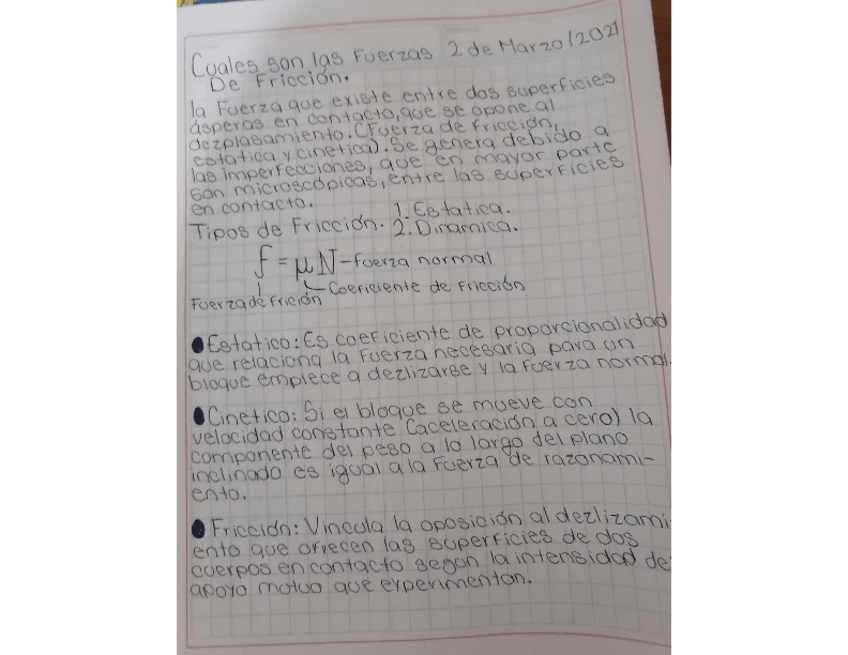 Cuales son las Fuerzas 2 de Marzo/2021
De Fricción.
la Fuerza que existe entre dos superficies
ásperas en contacto, que se opone al
dezplasamiento. (Fuerza de fricción,
estatica y cinetica). Se genera debido a
las imperfecciones, que en mayor parte
son microscópicas, entre las superficies
en contacto.
Tipos de Fricción. 1. Estatica.
2. Dinamica.
f = μN - Fuerza normal
Coeficiente de Fricción
Fuerza de frición
Estatico: Es coeficiente de proporcionalidad
que relaciona la fuerza necesaria para un
bloque empiece a dezlizarse y la fuerza normal.
Cinetico: Si el bloque se mueve con
velocidad constante (aceleración a cero) la
componente del peso a lo largo del plano
inclinado es igual a la Fuerza de razonami-
ento.
Fricción: Vincula la oposición al dezlizami
ento que ofrecen las superficies de dos
cuerpos en contacto segun la intensidad de
apoyo mutuo que experimentan.